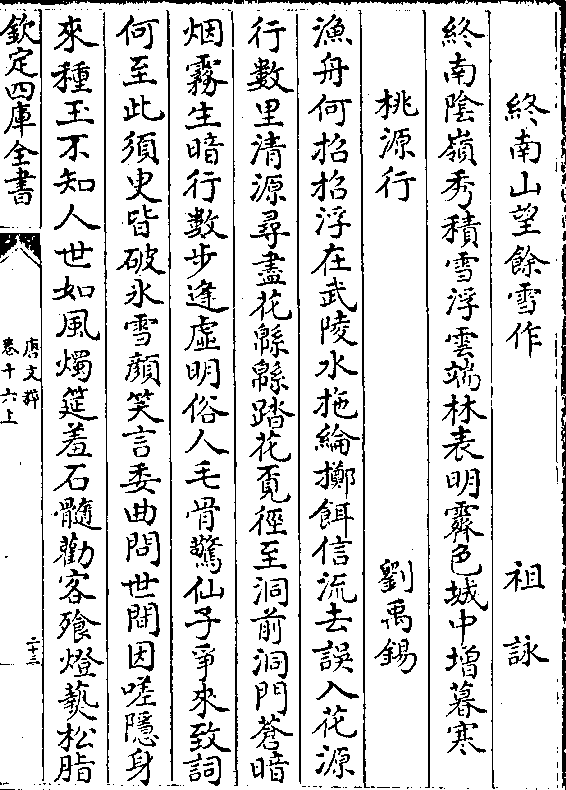 終南山望餘雪作　祖詠
終南陰嶺秀積雪浮雲端林表明霽色城中增暮寒
桃源行　劉禹錫
漁舟何招招浮在武陵水拖綸擲餌信流去誤入花源
行數里清源尋盡花緜緜踏花覓徑至洞前洞門蒼暗
烟霧生暗行數步逢虛明俗人毛骨驚仙子爭來致詞
何至此須臾皆破氷雪顔笑言委曲問世間因嗟隱身
來種玉不知人世如風燭筵羞石髓勸客飱燈爇松脂
欽定四庫全書
唐文粹
卷十六上
二十三